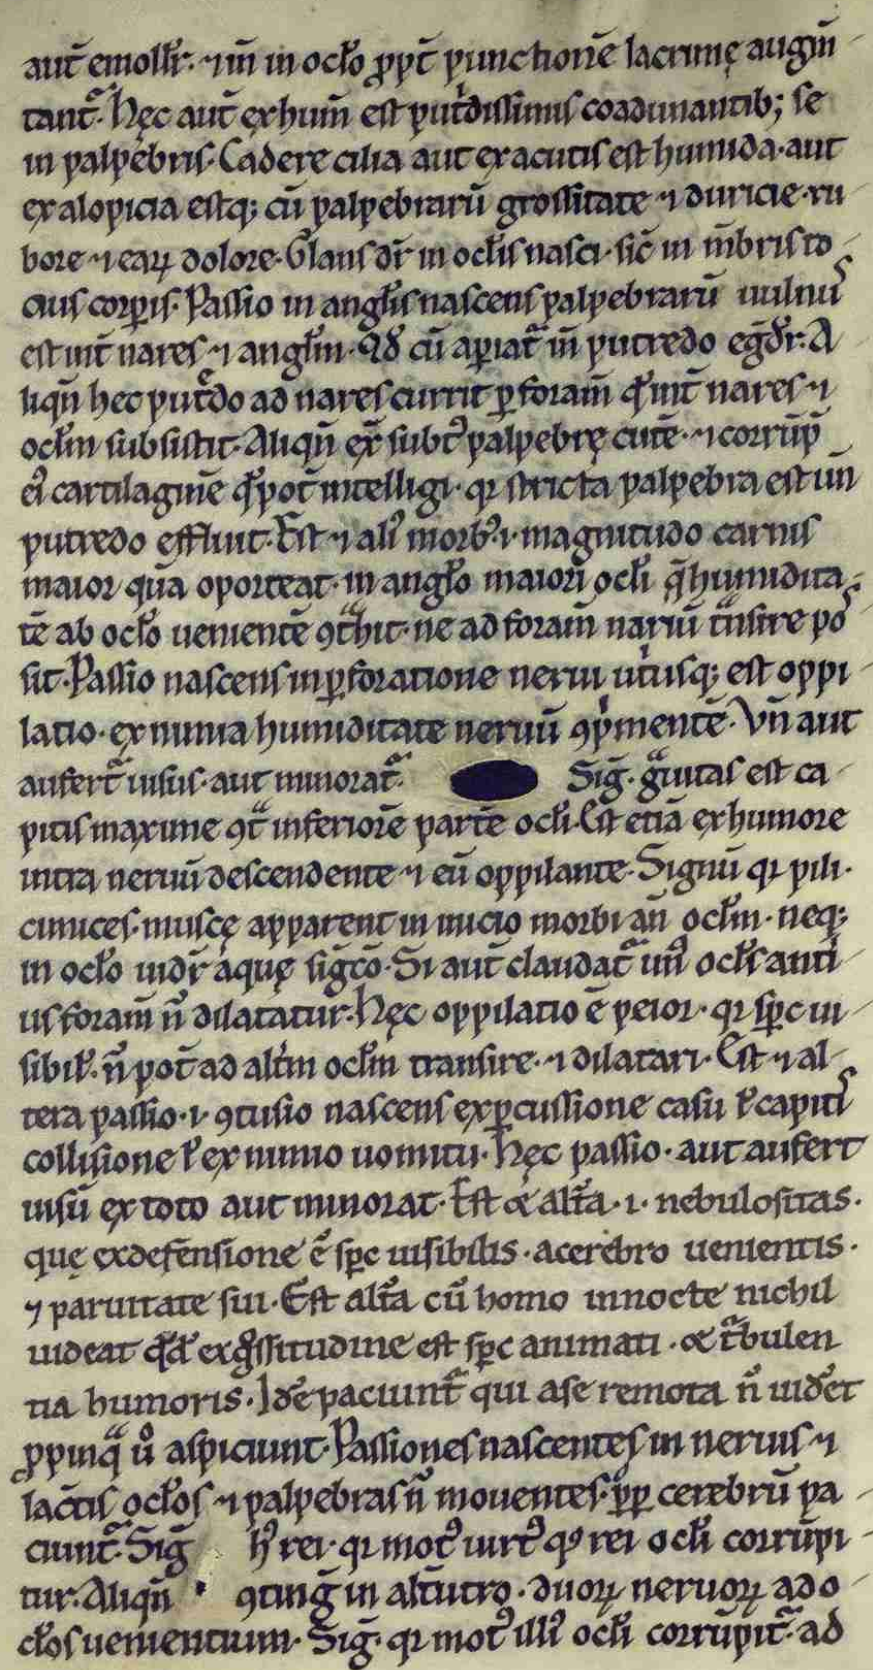 aut̄ emollr̄. ⁊ im̄ in oclo ꝓpt̄ punctionē lacrimę augm̄
tant᷑. Hęc aut̄ ex hum̄ est put'dissimis coadunantib; se
in palpebris. Cadere cilia aut ex acutis est humida. aut
ex alopicia estq; cū palpebrarū grossitate ⁊ duricie. ru
bore ⁊ eaꝝ dolore. Glans dr̄ in oclis nasci. sic̄ in m̄bris to
cius corꝑis. Passio in anglis nascens palpebrarū uulnus
est int̄ nares ⁊ anglm̄. Qd̄ cū aꝑiat᷑ in̄ putredo egdr̄. A
liqn̄ hec put'do ad nares currit ꝑ foram̄ qd̄ int̄ nares ⁊
oclm̄ subsistit. Aliqn̄ ex̄ subt᷒ palpebrę cutē. ⁊ corrūp̄
ei᷒ cartilaginē qd̄ pot̄ intelligi. qꝛ stricta palpebra est un̄
putredo effluit. Est ⁊ ali᷒ morb᷒.i. magnitudo carnis
maior quā oporteat. in anglo maiori ocli q̄ humidita
tē ab oclo uenientē ꝯthit. ne ad foram̄ nariū tᷓnsire pos
sit. Passio nascens in ꝑforatione nerui ut'usq; est oppi
latio. ex nimia humiditate neruū ꝯpͥmentē. Vn̄ aut
aufert᷑ uisus. aut minorat᷑. Sig̅. gᷓuitas est ca
pitis maxime ꝯtᷓ inferiorē partē ocli. Est etiā ex humore
intra neruū descendente ⁊ eū oppilante. Signū qꝛ pili.
cimices. muscę apparent in inicio morbi an̄ oclm̄. neq;
in oclo uidr̄ aquę sig̅cō. Si aut̄ claudat᷑ un᷒ oclꝰ alti
us foram̄ n̄ dilatatur. Hęc oppilatio ē peior. qꝛ spc̄ ui
sibil̄. n̄ pot̄ ad alt'm oclm̄ transire. ⁊ dilatari. Est ⁊ al
tera passio.i. ꝯtusio nascens ex ꝑcussione casu ł capitis
collisione ł ex nimio uomitu. Hęc passio. aut aufert
uisū ex toto aut minorat. Est & alt̄a.i. nebulositas.
quę ex defensione ē spc̄ uisibilis. a cerebro uenientis.
⁊ paruitate sui. Est alt̄a cū homo in nocte nichil
uideat qd̄ ex gͦssitudine est spc̄ animati. & tᷓbulen
tia humoris. Idē paciunt᷑ qui a se remota n̄ uidēt
ꝓpinqᷓ uͦ aspiciunt. Passiones nascentes in neruis ⁊
lac̄tis oclos ⁊ palpebras n̄ mouentes. ꝓp̄ cerebrū pa
ciunt᷑. Sig̅ h᷒ rei. qꝛ mot᷒ uirt᷒ rei ocli corrūpi
tur. Aliqn̄ ꝯting̅ in alt̄utro. duoꝝ neruoꝝ ad o
clos uenientium. Sig̅. qꝛ mot᷒ illi᷒ ocli corrūpit᷑. ad